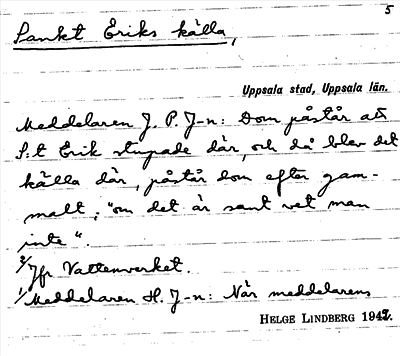 5
Sankt Eriks källa,
Uppsala stad, Uppsala län.
Meddelaren J. P. J-n: Dom påstår att
S:t Erik stupade där, och då blev det
källa där, påstår dom efter gam-
malt; "om det är sant vet man
inte".
2/ Jfr Vattenverket.
1/ Meddelaren H. J-n: När meddelarens
HELGE LINDBERG 1942.